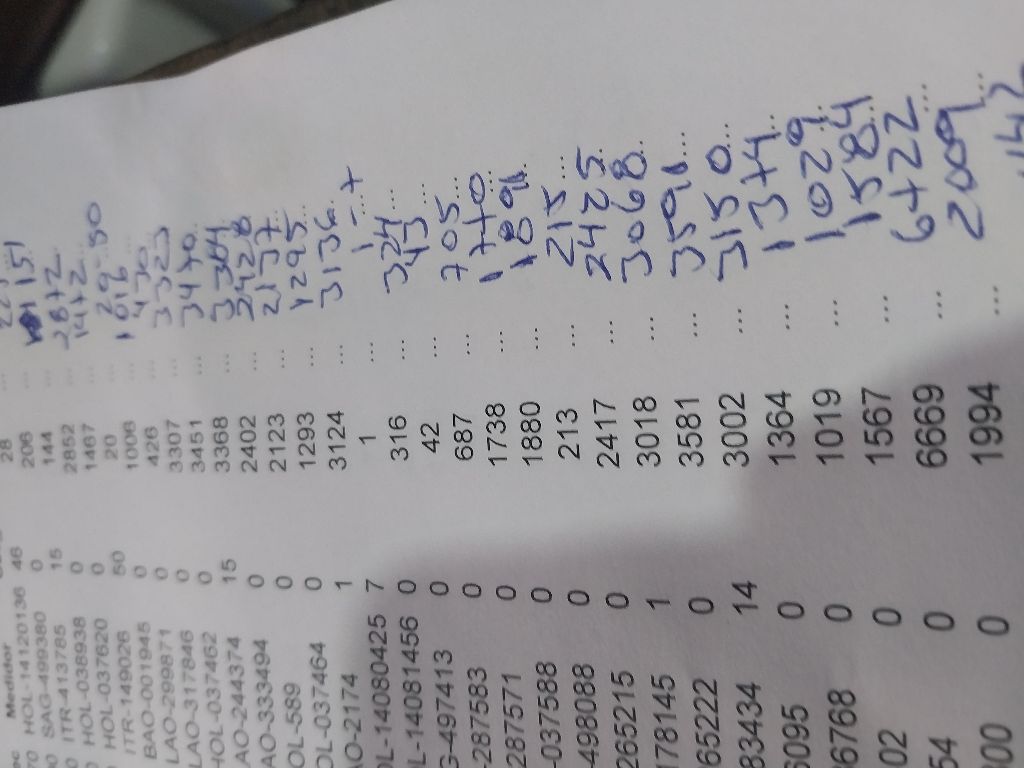 Medidor
HOL-14120136 46 28 ...
SAG-499380 0 206 ...
ITR-413785 15 144 ... 151
HOL-038938 0 2852 ... 2872
HOL-037620 0 1467 ... 1472
ITR-149026 50 20 ... 29-50
BAO-001945 0 1006 ... 1016
LAO-299871 0 426 ... 430
LAO-317846 0 3307 ... 3323
HOL-037462 0 3451 ... 3470
AO-244374 15 3368 ... 3384
AO-333494 0 2402 ... 2428
OL-589 0 2123 ... 2137
OL-037464 0 1293 ... 1295
AO-2174 1 3124 ... 3136
OL-14080425 7 1 ... 1-7
L-14081456 0 316 ... 324
G-497413 0 42 ... 43
-287583 0 687 ... 705
287571 0 1738 ... 1740
-037588 0 1880 ... 1891
-498088 0 213 ... 215
265215 0 2417 ... 2425
178145 1 3018 ... 3068
65222 0 3581 ... 3591
83434 14 3002 ... 3150
6095 0 1364 ... 1374
6768 0 1019 ... 1029
02 0 1567 ... 1584
54 0 6669 ... 6722
00 0 1994 ... 2009